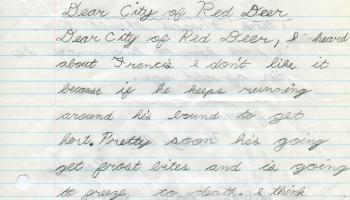 Dear City of Red Deer
Dear City of Red Deer, I heard
about Francis I don't like it
because if he keeps running
around he's bound to get
hort. Pretty soon he's going
get frost bites and is going
to freeze to death. I think